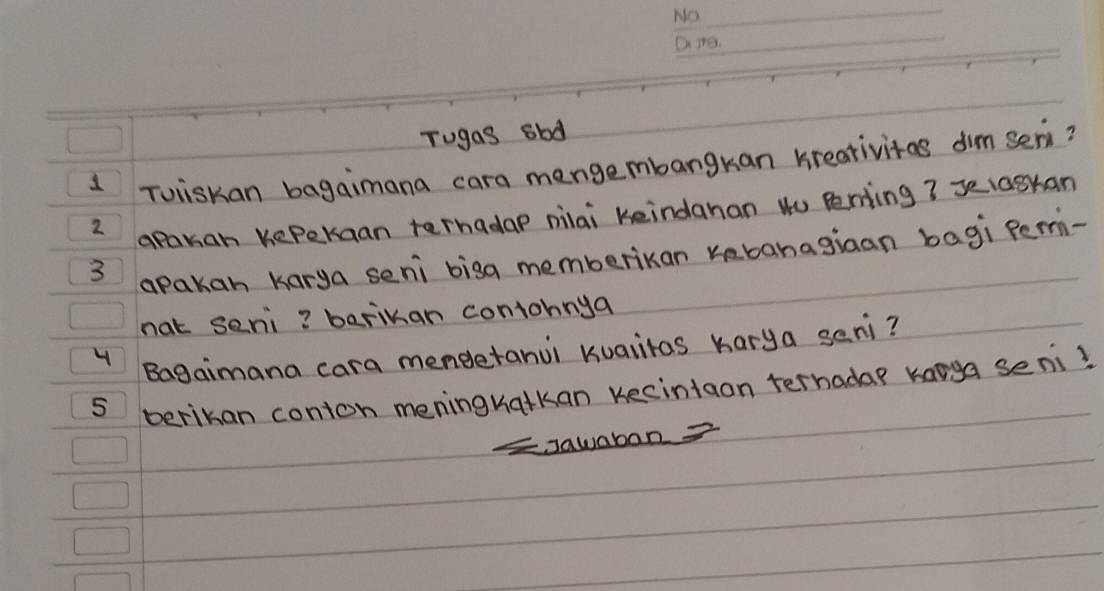 No
Date.
Tugas sbd
1 Tuliskan bagaimana cara mengembangkan kreativitas dlm seni?
2 apakah kepekaan terhadap nilai keindahan itu penting? Jelaskan
3 apakah karya seni bisa memberikan kebahagiaan bagi pemi-
nat seni? berikan contohnya
4 Bagaimana cara mengetahui kualitas karya seni?
5 berikan contoh meningkatkan kecintaan terhadap karya seni!
<Jawaban>